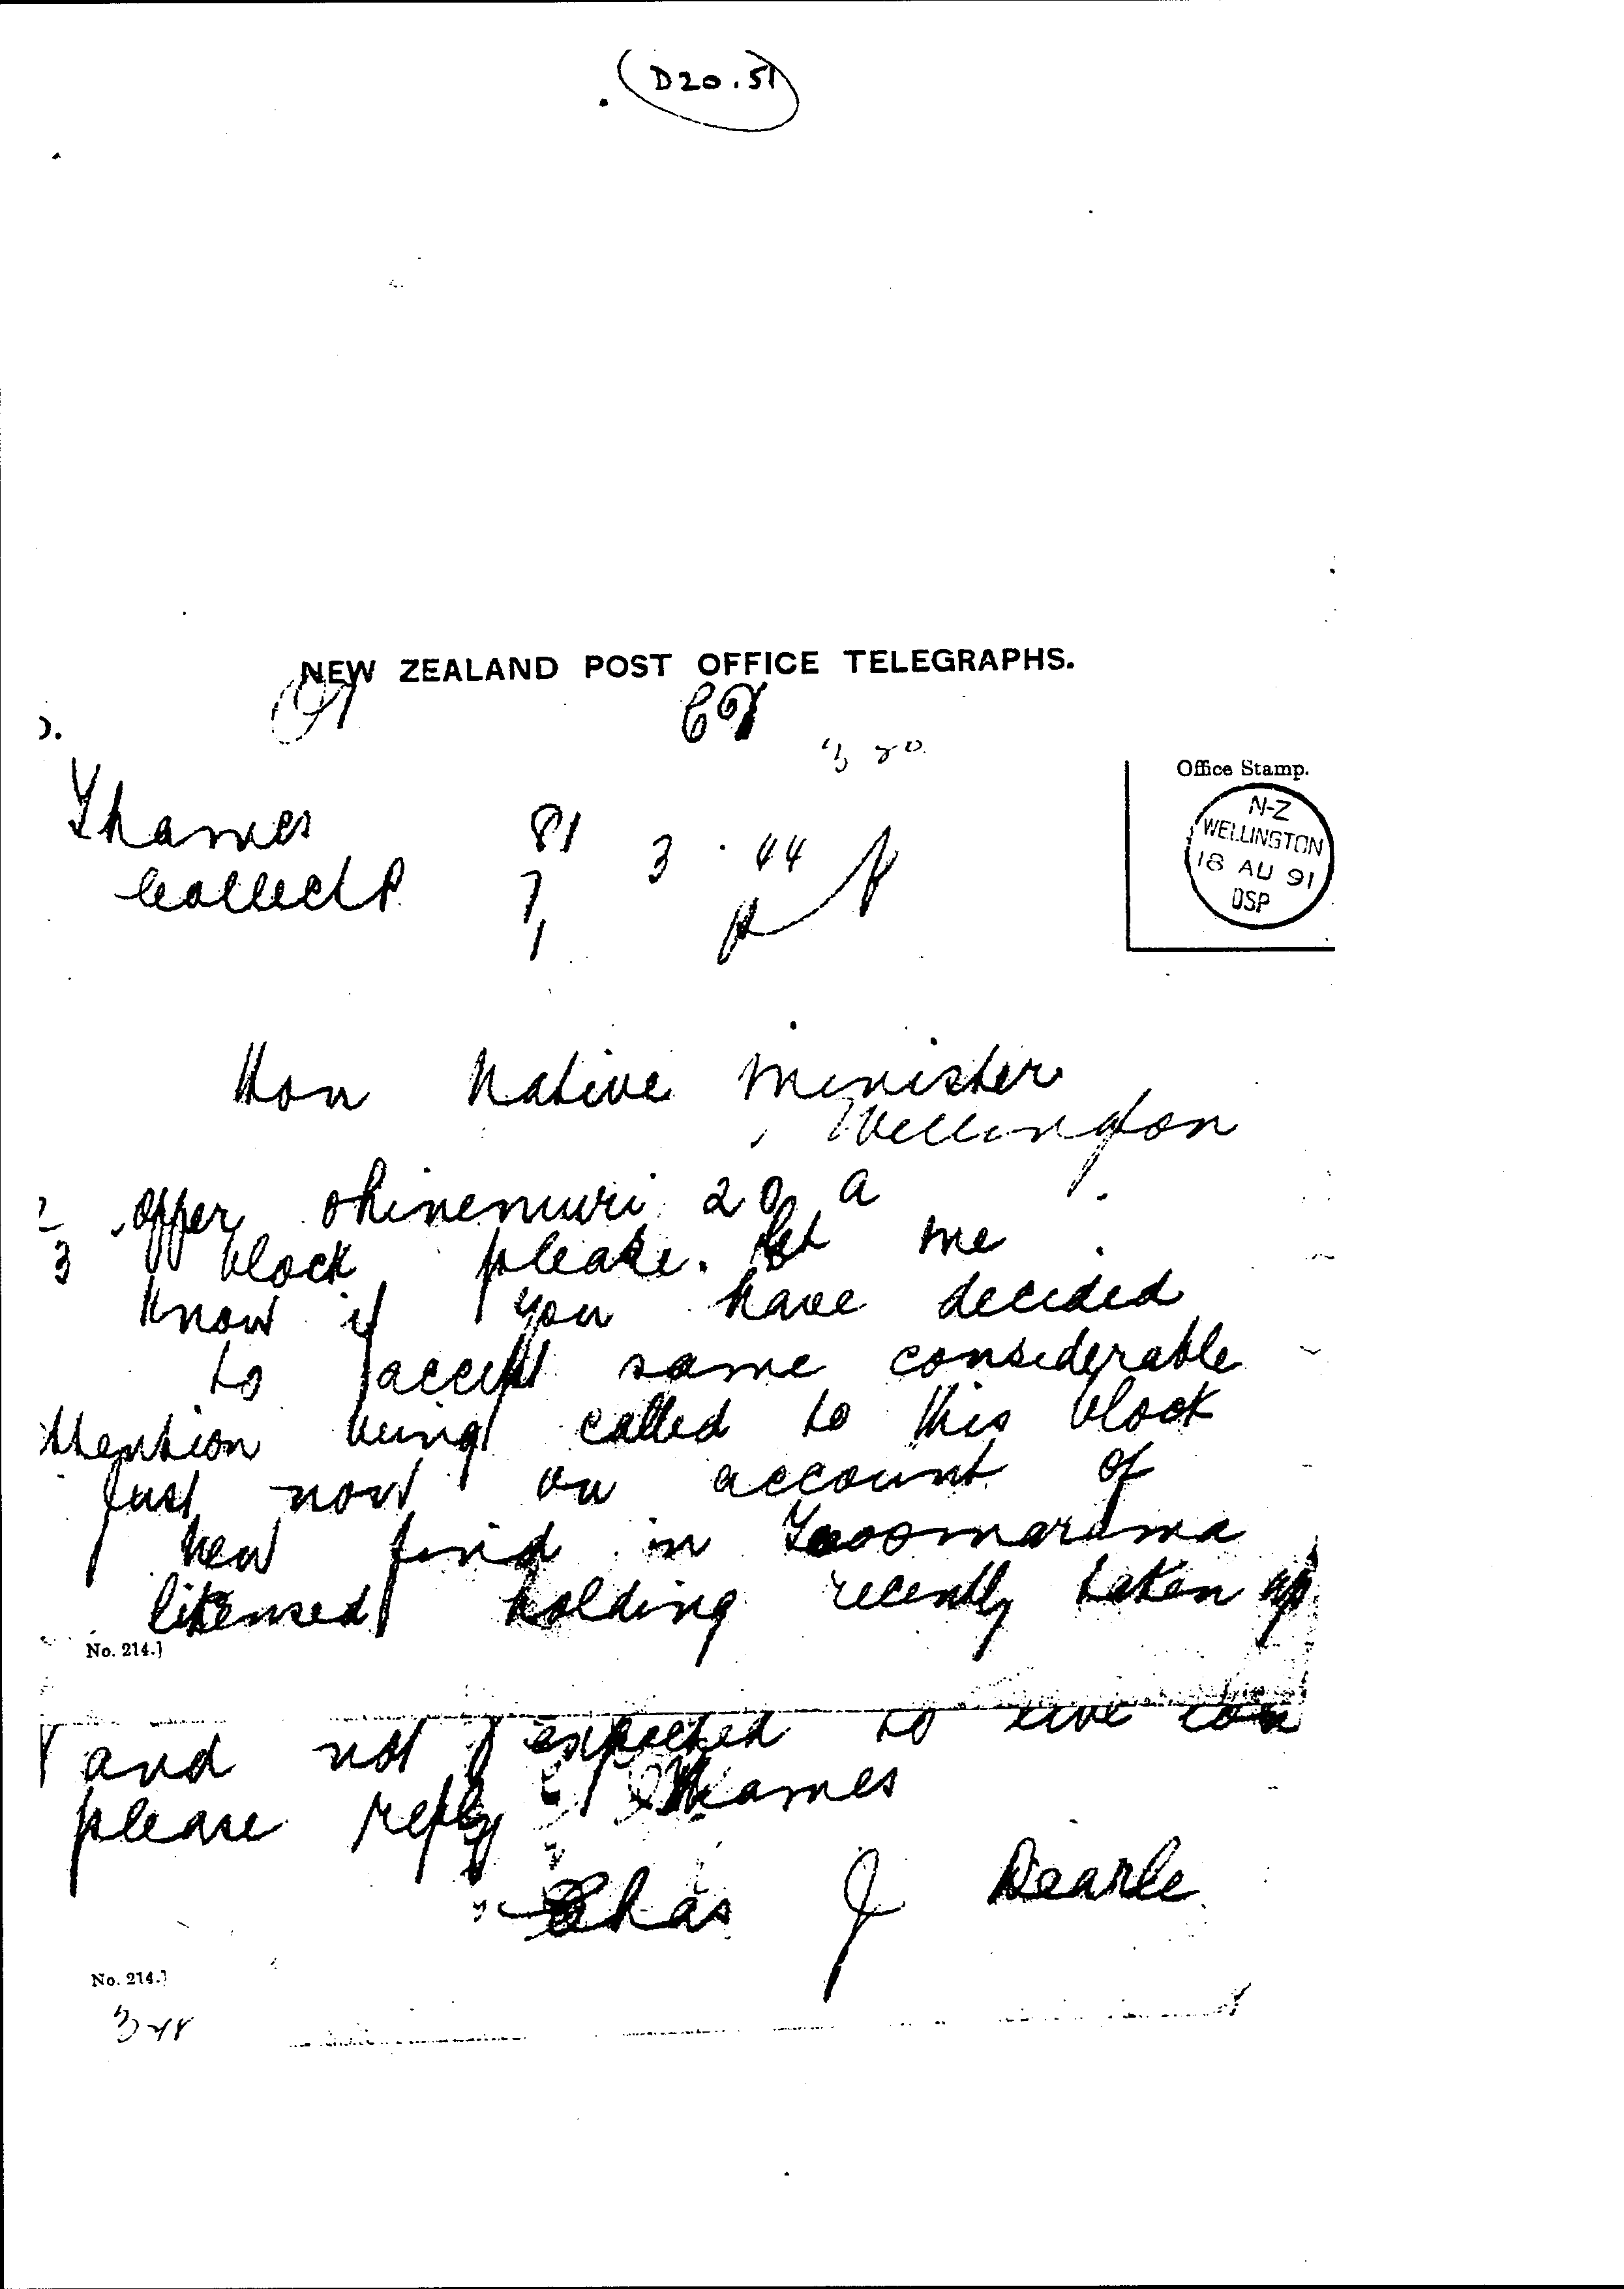 (D20.51)
NEW ZEALAND POST OFFICE TELEGRAPHS.
3 20
Office Stamp.
N-Z
WELLINGTON
18 AU 91
DSP
Thames 81 3 . 44 p
Collect 7
1
Hon Native Minister
Wellington
offer Ohinemuri 20 a
3 block please. let me
know if you have decided
to accept same considerable
ttention being called to this block
just now on account of
new find in
licensed holding recently taken up
No. 214.]
and not expected to live
please reply Thames
Chas J Dearle
No. 214.]